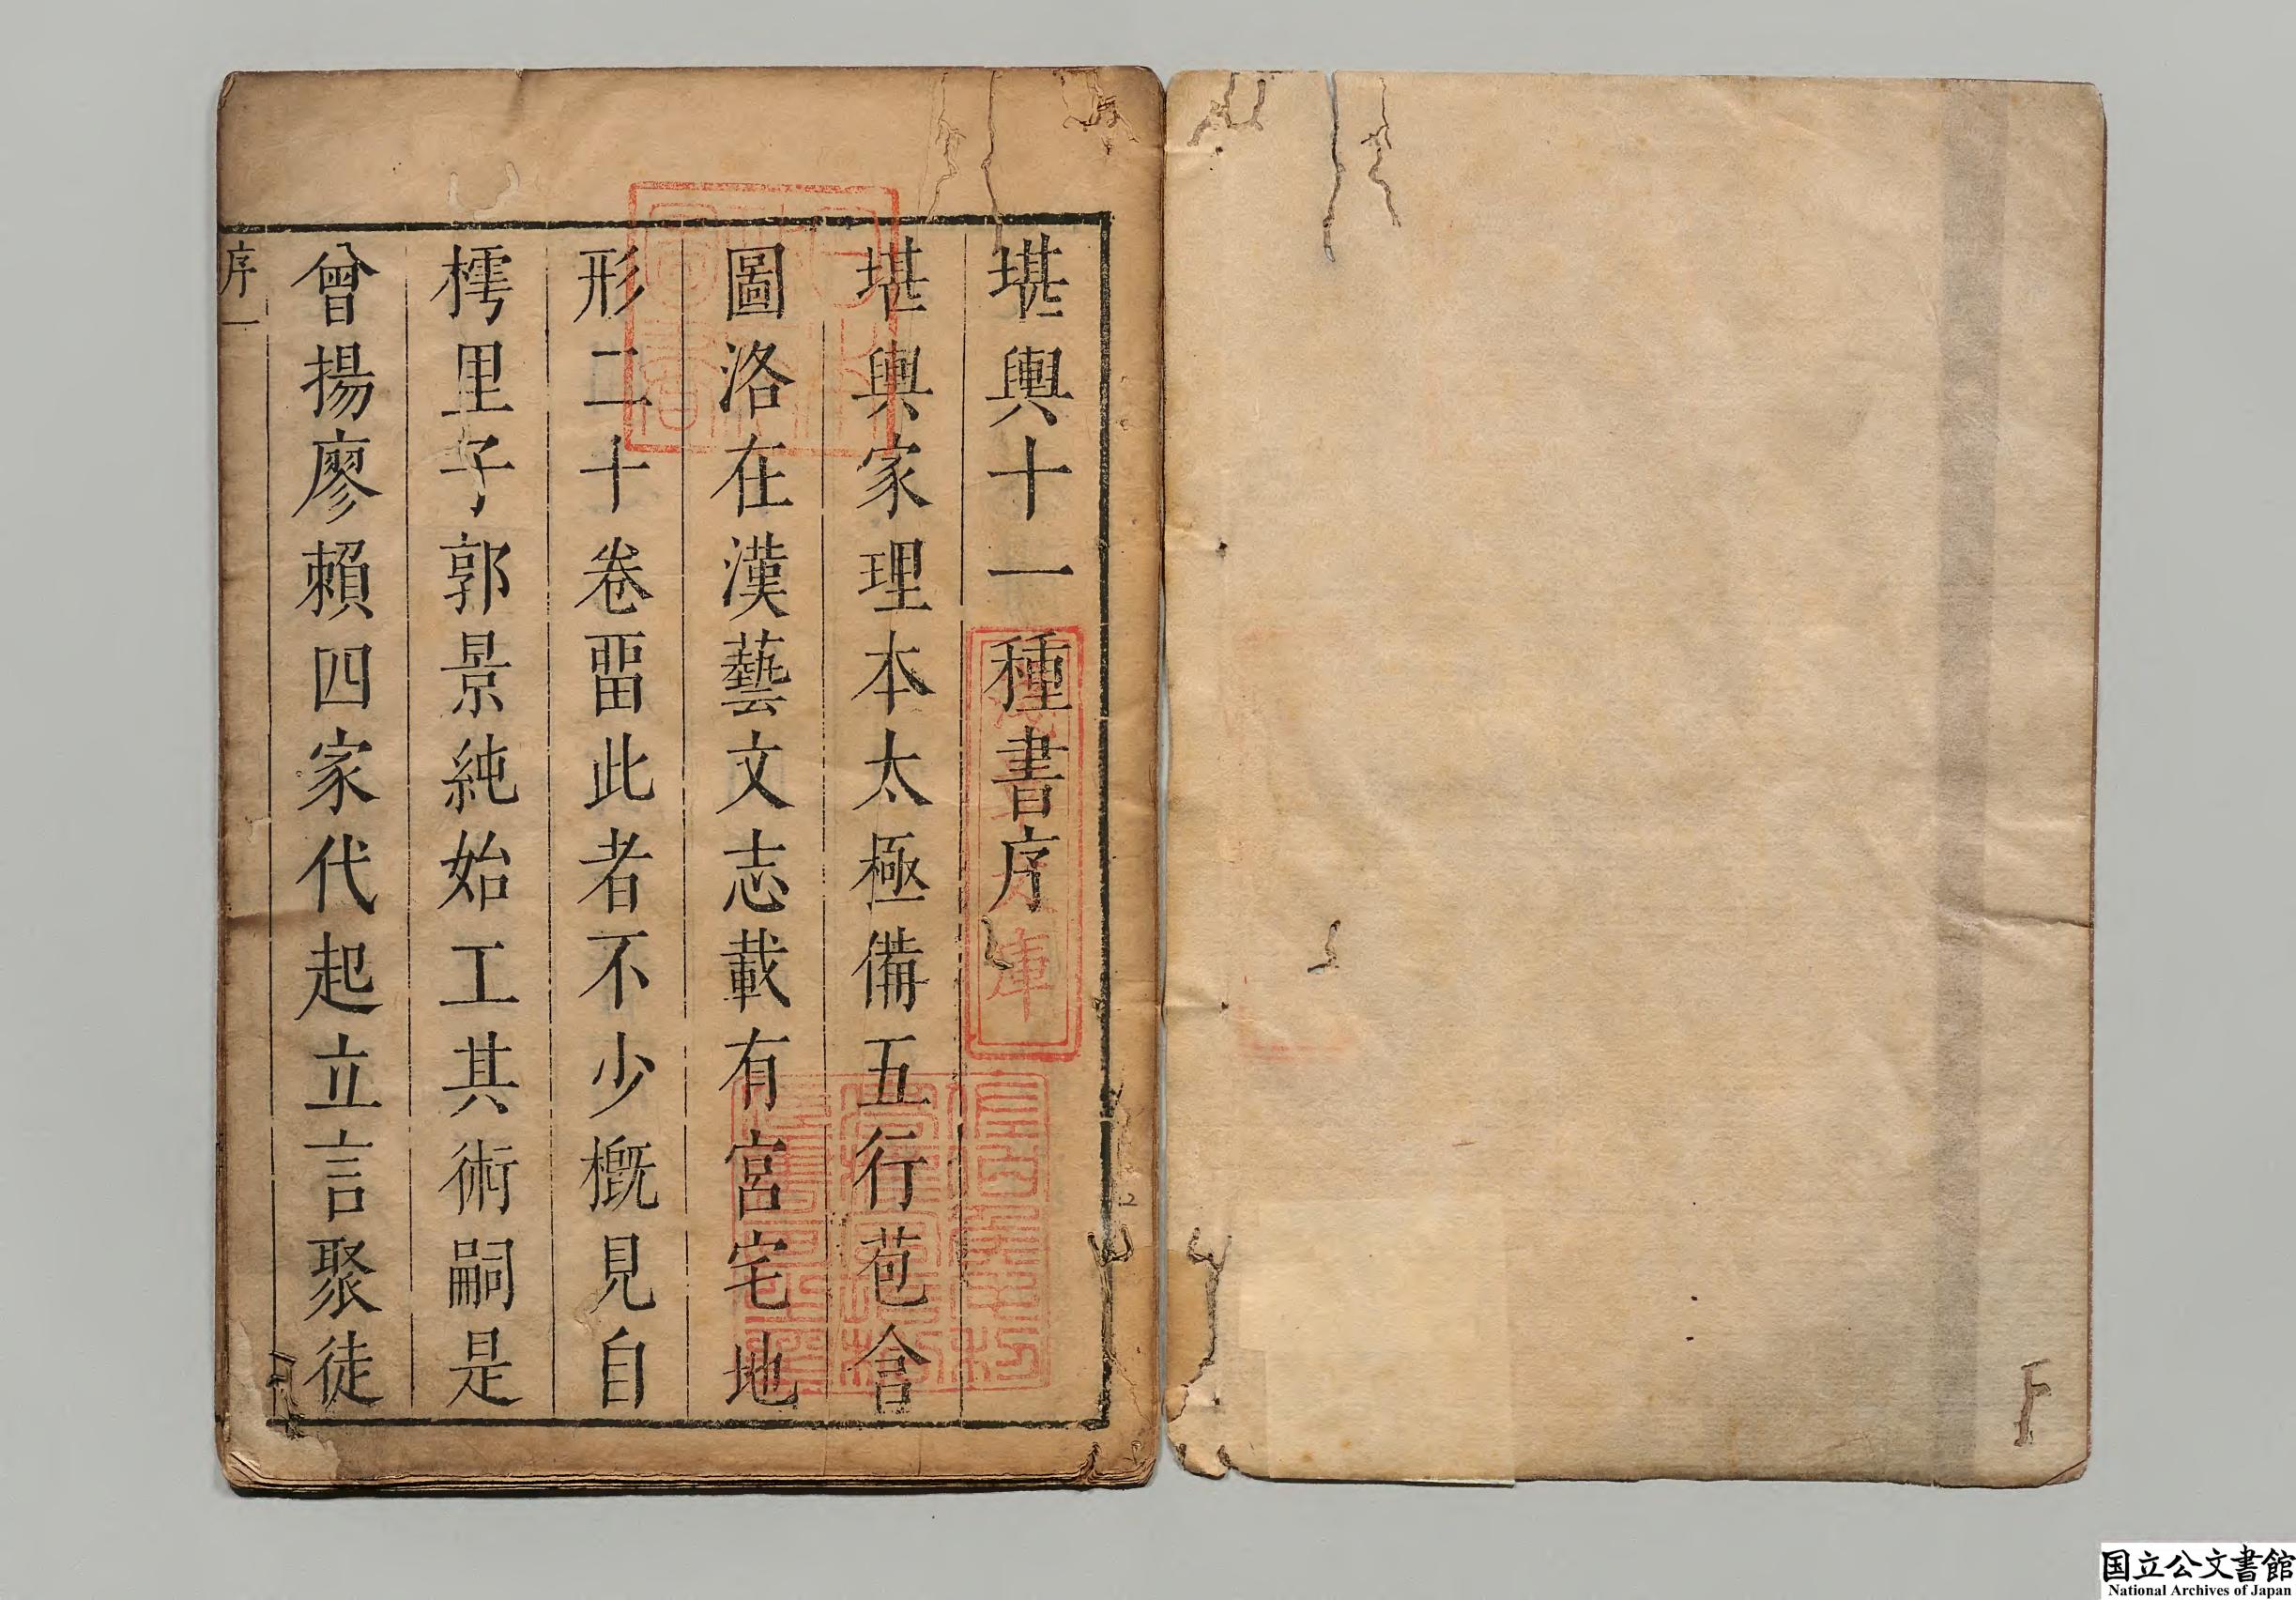 堪輿十一種書序
堪輿家理本太極備五行苞含
圖洛在漢藝文志載有宮宅地
形二十卷畱此者不少概見自
樗里子郭景純始工其術嗣是
曾揚廖賴四家代起立言聚徒
序
一
国立公文書館
National Archives of Japan